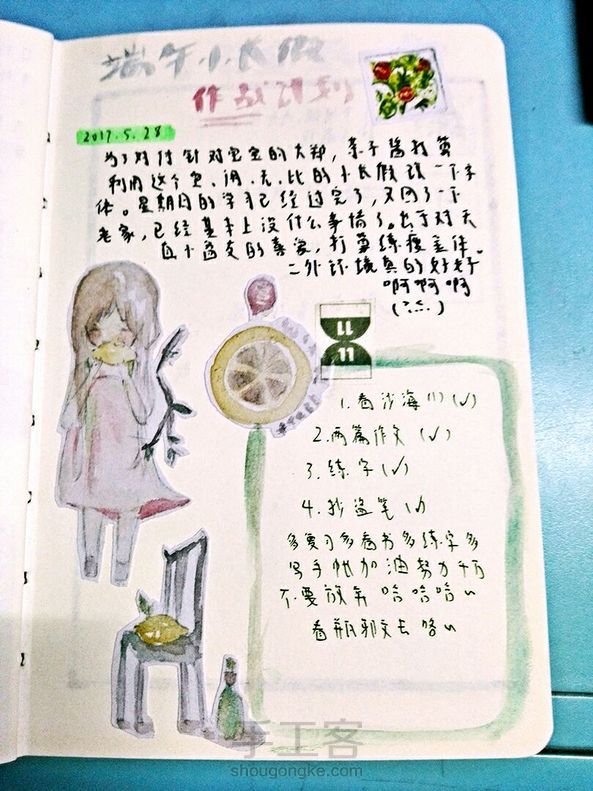 端午小长假
作战计划
2017.5.28
为了对付针对宝宝的大郑,亲子酱打算
利用这个宝、阔、无、比的小长假改一下字
体。星期日的学习已经过完了,又回了一下
老家,已经基本上没什么事情了。出于对天
真小盗文的喜爱,打算练瘦金体。
二外环境真的好好
啊啊啊
11
11
1.看沙海(1)(√)
2.两篇作文(√)
3.练字(√)
4.抄盗笔(√)
多复习多看书多练字多
写手帐加油努力千万
不要放弃哈哈哈~
看瓶邪文去咯~
手工客
shougongke.com